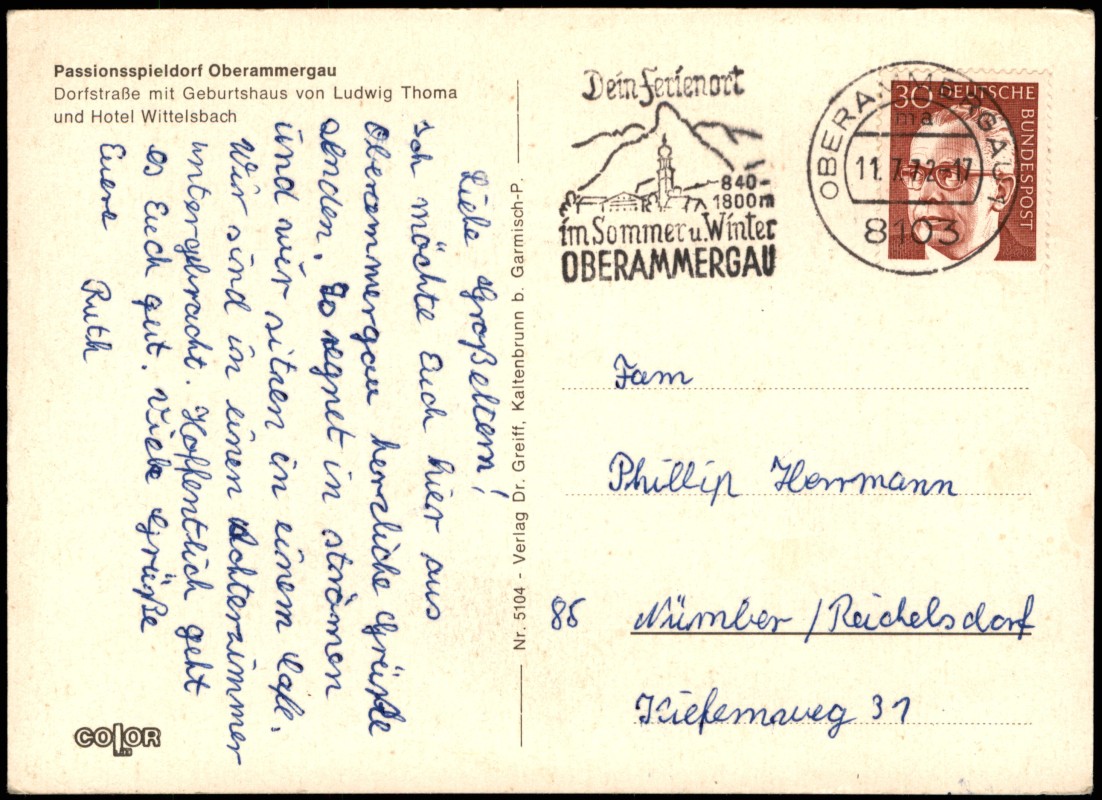 Passionsspieldorf Oberammergau
Dorfstraße mit Geburtshaus von Ludwig Thoma
und Hotel Wittelsbach
Liebe Großeltern!
Ich möchte Euch hier aus
Oberammergau herzliche Grüße
senden. Es regnet in strömen
und wir sitzen in einem Cafe.
Wir sind in einen Achterzimmer
untergebracht. Hoffentlich geht
es Euch gut. Viele Grüße
Euere Ruth
COLOR
Nr. 5104 - Verlag Dr. Greiff, Kaltenbrunn b. Garmisch-P.
Dein Ferienort
840-
1800m
im Sommer u. Winter
OBERAMMERGAU
OBERAMMERGAU 1
ma
11.7.72-17
8103
30 DEUTSCHE
BUNDESPOST
Fam
Phillip Herrmann
85 Nürnber / Reichelsdorf
Kiefernweg 31